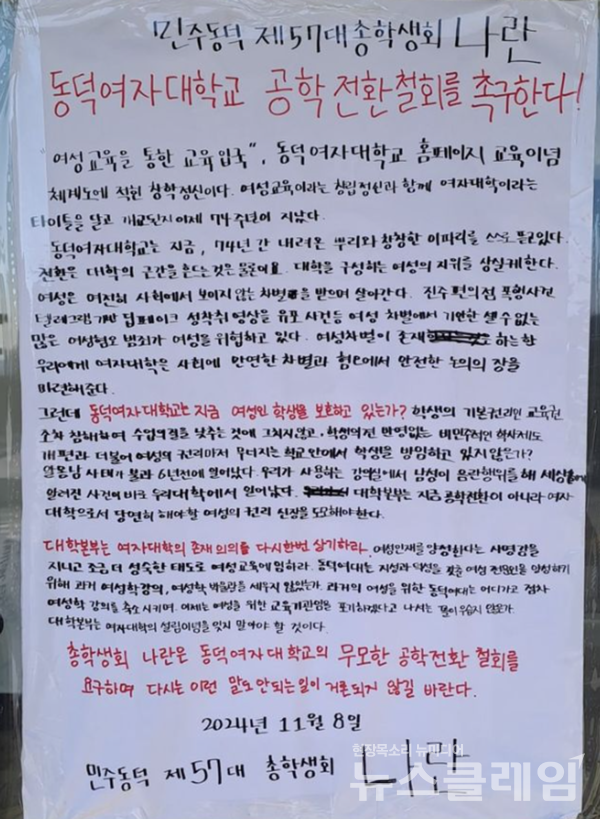 민주동덕 제57대 총학생회 나란
동덕여자대학교 공학전환철회를 촉구한다!
"여성교육을 통한 교육입국", 동덕여자대학교 홈페이지 교육이념
체계도에 적힌 창학정신이다. 여성교육이라는 창립정신과 함께 여자대학이라는
타이틀을 달고 개교된지 이제 74주년이 지났다.
동덕여자대학교는 지금, 74년간 내려온 뿌리와 창창한 이파리를 스스로 뜯고있다.
전환은 대학의 근간을 흔드는 것은 물론이요. 대학을 구성하는 여성의 지위를 상실케한다.
여성은 여전히 사회에서 보이지 않는 차별을 받으며 살아간다. 진주 편의점 폭행사건
텔레그램 기반 딥페이크 성착취 영상물 유포 사건등 여성 차별에서 기인한 셀 수 없는
많은 여성혐오 범죄가 여성을 위협하고 있다. 여성차별이 존재 하는 한
우리에게 여자대학은 사회에 만연한 차별과 혐오에서 안전한 논의의 장을
마련해준다.
그런데 동덕여자대학교는 지금 여성인 학생을 보호하고 있는가? 학생의 기본권리인 교육권
조차 침해하여 수업의 질을 낮추는 것에 그치지않고, 학생의견 반영없는 비민주적인 학사제도
개편과 더불어 여성의 권리마저 무너지는 학교 안에서 학생을 방임하고 있지 않은가?
알몸남 사태가 불과 6년전에 일어났다. 우리가 사용하는 강의실에서 남성이 음란행위를 해 세상에
알려진 사건이 바로 우리대학에서 일어났다. 대학본부는 지금 공학전환이 아니라 여자
대학으로서 당연히 해야할 여성의 권리 신장을 도모해야한다.
대학본부는 여자대학의 존재 의의를 다시한번 상기하라. 여성인재를 양성한다는 사명감을
지니고 조금 더 성숙한 태도로 여성교육에 임하라. 동덕여대는 지성과 덕성을 갖춘 여성 전문인을 양성하기
위해 과거 여성학강의, 여성학 박물관을 세우지 않았는가. 과거의 여성을 위한 동덕여대는 어디가고 점차
여성학 강의를 축소시키며, 이제는 여성을 위한 교육기관임을 포기하겠다고 나서는 꼴이 우습지 않은가.
대학본부는 여자대학의 설립이념을 잊지 말아야 할 것이다.
총학생회 나란은 동덕여자대학교의 무모한 공학전환 철회를
요구하며 다시는 이런 말도 안되는 일이 거론되지 않길 바란다.
2024년 11월 8일
민주동덕 제57대 총학생회 나란
현장목소리 뉴미디어
뉴스클레임